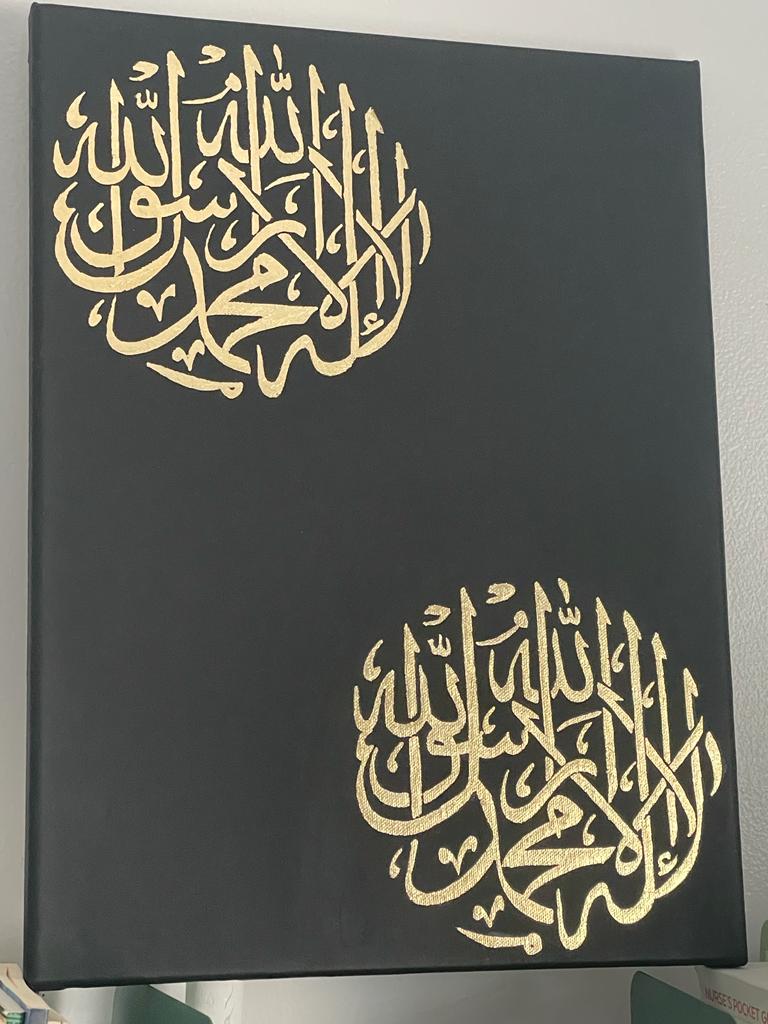 لا إله إلا الله محمد رسول الله
لا إله إلا الله محمد رسول الله
NURSE'S POCKET G